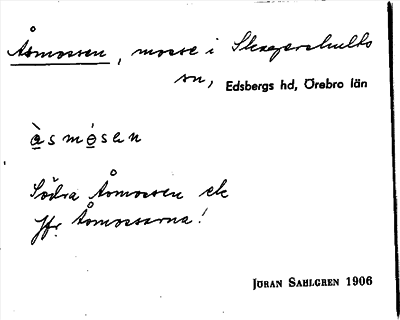 Åsmossen, mosse i Skagershults
sn, Edsbergs hd, Örebro län
åsmòsen
Södra Åsmossen ek
Jfr Åsmossarna!
JÖRAN SAHLGREN 1906